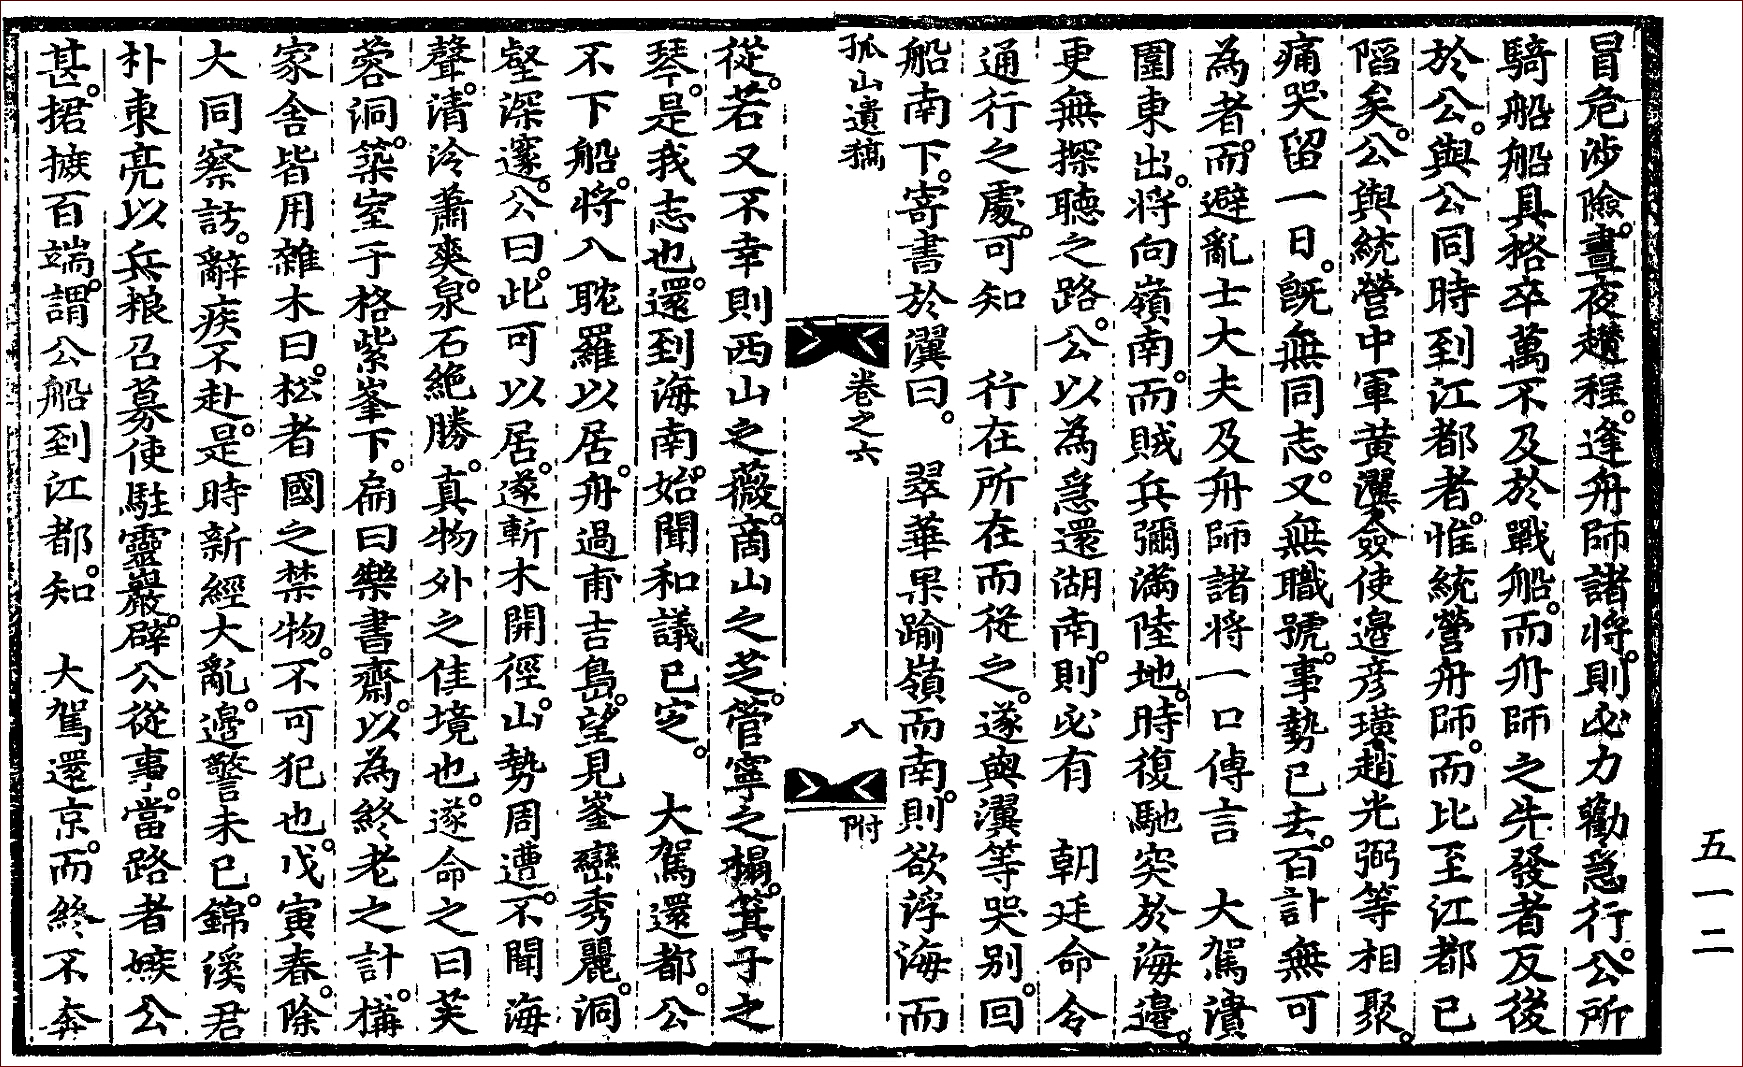 冒危涉險。晝夜趲程。逢舟師諸將。則必力勸急行。公所
騎船船具格卒。萬不及於戰船。而舟師之先發者反後
於公。與公同時到江都者。惟統營舟師。而比至江都已
陷矣。公與統營中軍黃瀷僉使邊彥璜趙光弼等相聚。
痛哭留一日。旣無同志。又無職號。事勢已去。百計無可
為者。而避亂士大夫及舟師諸將一口傳言　大駕潰
圍東出。將向嶺南。而賊兵彌滿陸地。時復馳突於海邊。
更無探聽之路。公以為急還湖南。則必有　朝廷命令
通行之處。可知　行在所在而從之。遂與瀷等哭別。回
船南下。寄書於瀷曰。　翠華果踰嶺而南。則欲浮海而
孤山遺稿　卷之六　八　附
從。若又不幸則西山之薇。商山之芝。管寧之榻。箕子之
琴。是我志也。還到海南。始聞和議已定。　大駕還都。公
不下船。將入耽羅以居。舟過甫吉島。望見峯巒秀麗。洞
壑深邃。公曰。此可以居。遂斬木開徑。山勢周遭。不聞海
聲。清冷蕭爽。泉石絶勝。真物外之佳境也。遂命之曰芙
蓉洞。築室于格紫峯下。扁曰樂書齋。以為終老之計。搆
家舍皆用雜木曰。松者國之禁物。不可犯也。戊寅春。除
大同察訪。辭疾不赴。是時新經大亂。邊警未已。錦溪君
朴東亮以兵粮召募使駐靈巖。辟公從事。當路者嫉公
甚。捃摭百端。謂公船到江都。知　大駕還京。而終不奔
五一二